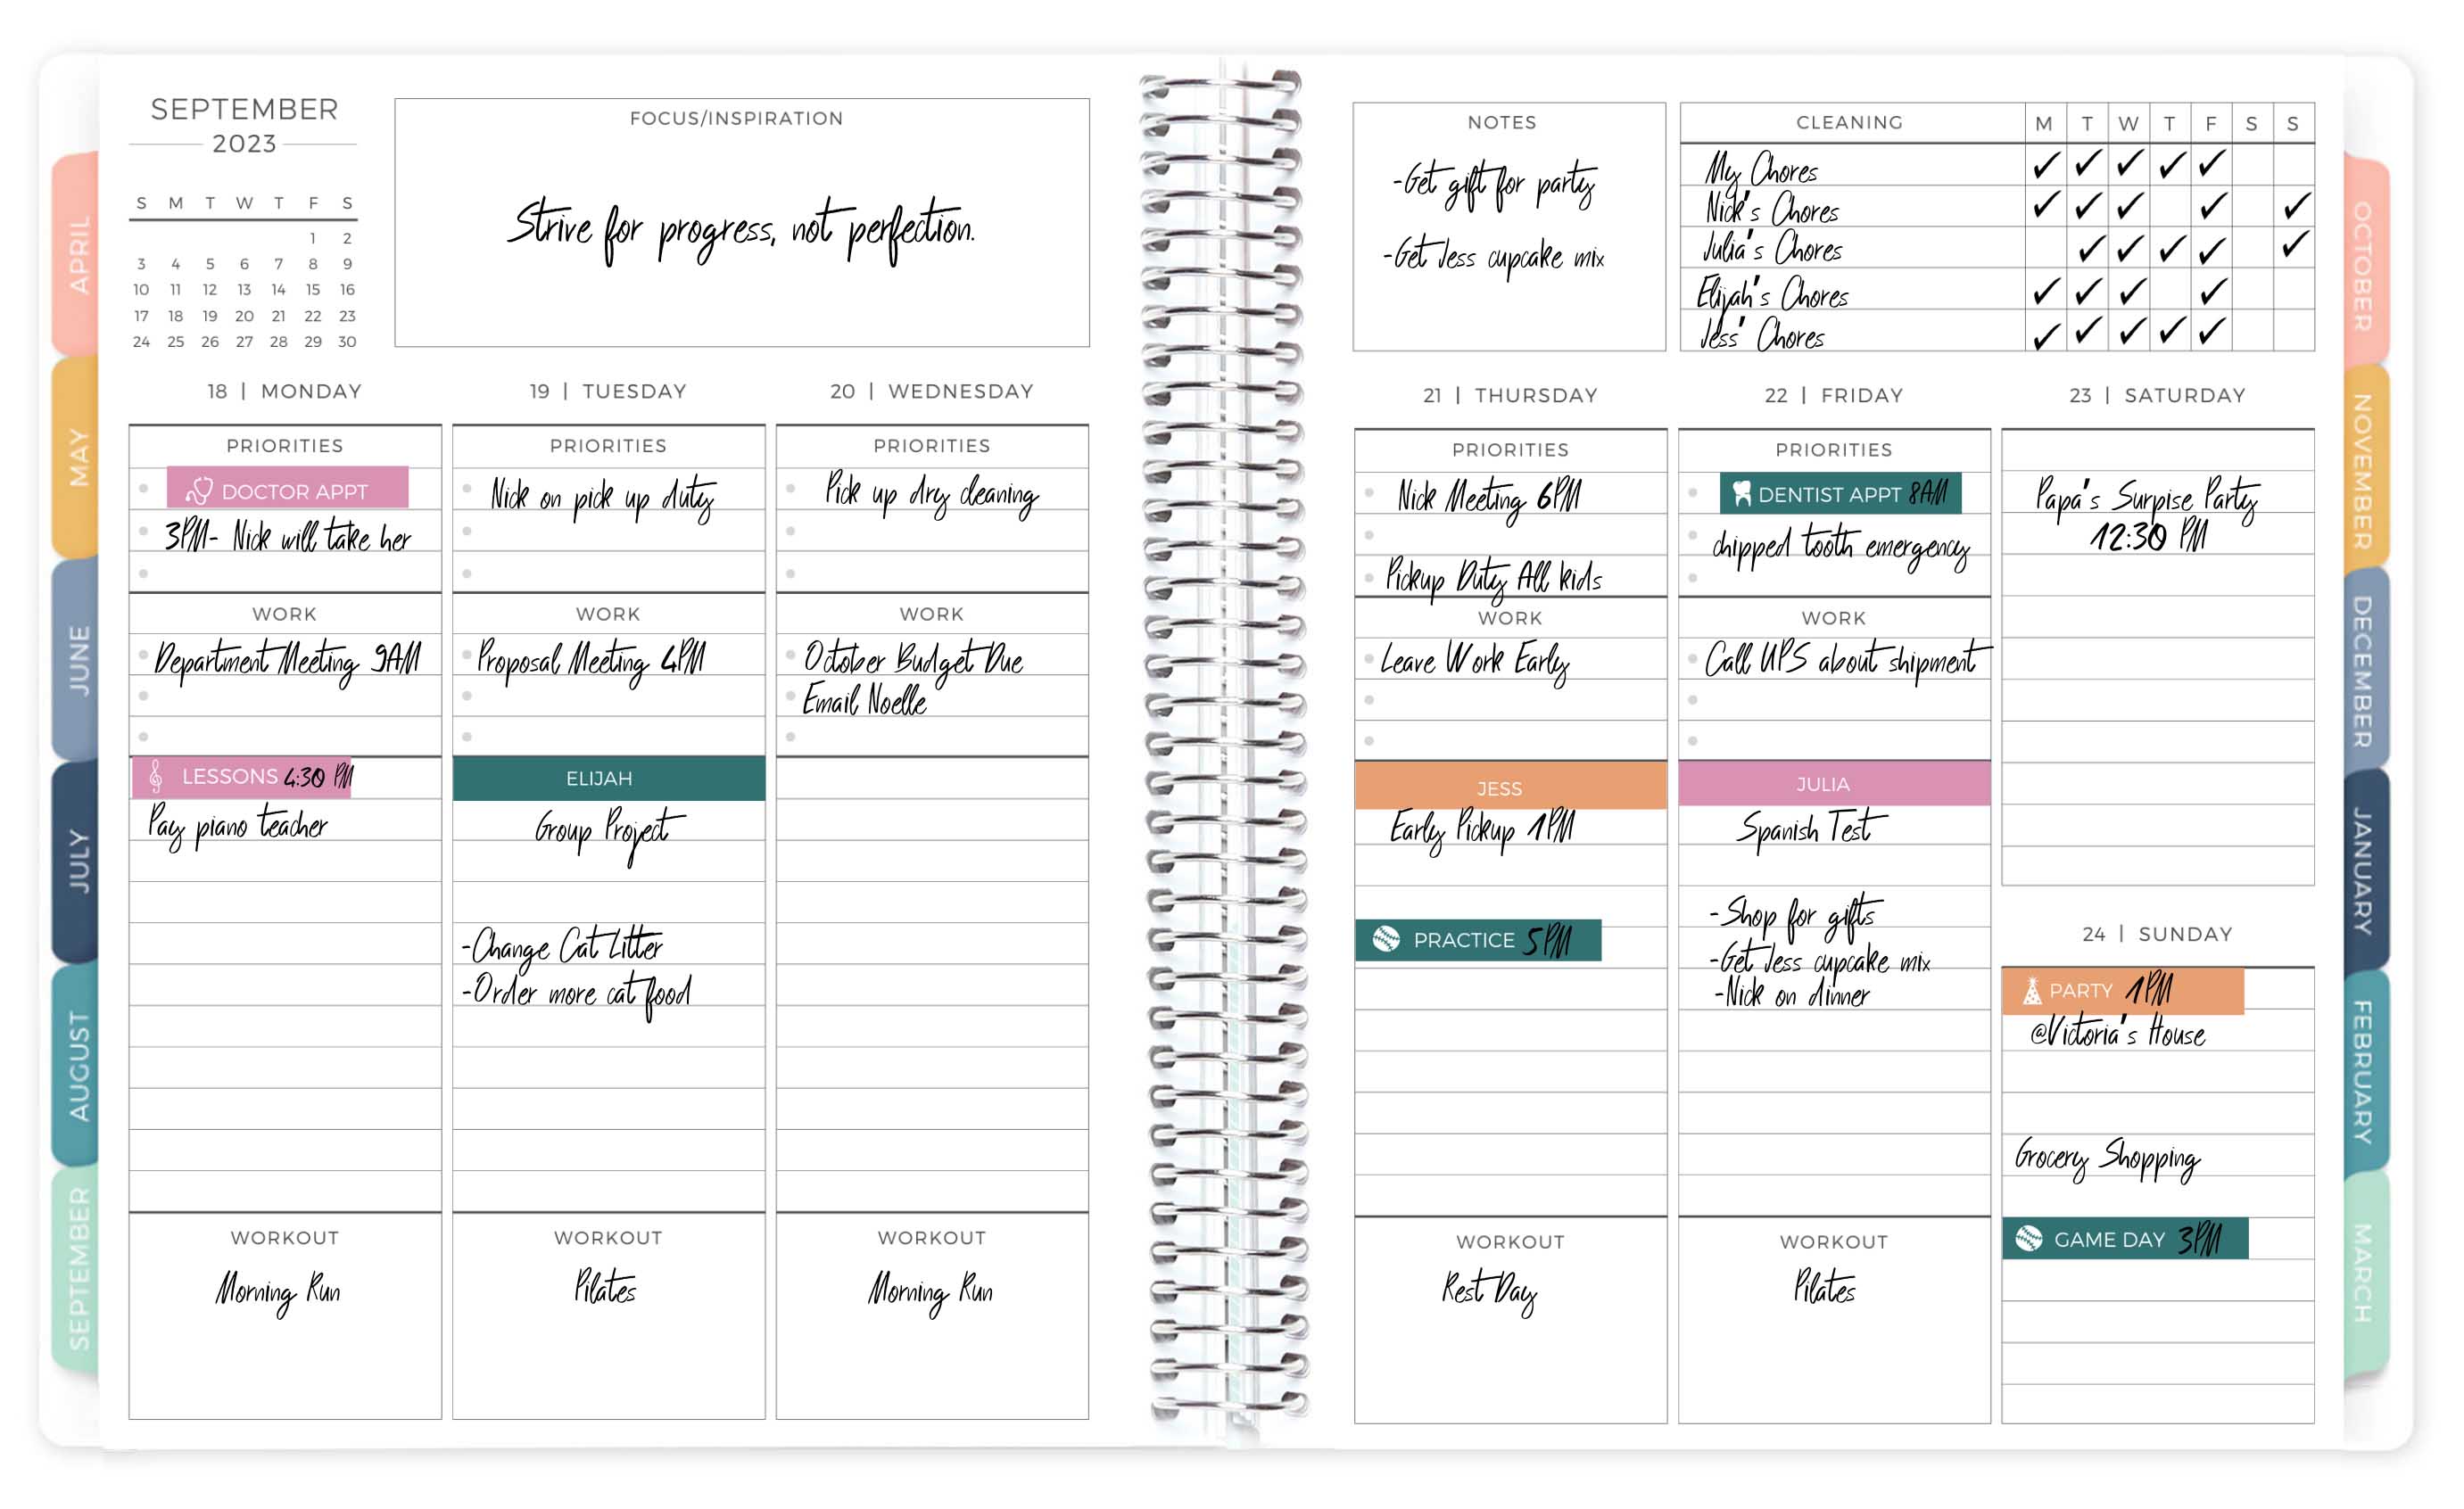 SEPTEMBER
2023
S M T W T F S
1 2
3 4 5 6 7 8 9
10 11 12 13 14 15 16
17 18 19 20 21 22 23
24 25 26 27 28 29 30
FOCUS/INSPIRATION
Strive for progress, not perfection.
18 | MONDAY
PRIORITIES
DOCTOR APPT
3PM- Nick will take her
WORK
Department Meeting 9AM
LESSONS 4:30 PM
Pay piano teacher
WORKOUT
Morning Run
19 | TUESDAY
PRIORITIES
Nick on pick up duty
WORK
Proposal Meeting 4PM
ELIJAH
Group Project
-Change Cat Litter
-Order more cat food
WORKOUT
Pilates
20 | WEDNESDAY
PRIORITIES
Pick up dry cleaning
WORK
October Budget Due
Email Noelle
WORKOUT
Morning Run
NOTES
-Get gift for party
-Get Jess cupcake mix
CLEANING M T W T F S S
My Chores ✓ ✓ ✓ ✓ ✓
Nick's Chores ✓ ✓ ✓ ✓ ✓
Julia's Chores ✓ ✓ ✓ ✓ ✓
Elijah's Chores ✓ ✓ ✓ ✓
Jess' Chores ✓ ✓ ✓ ✓ ✓
21 | THURSDAY
PRIORITIES
Nick Meeting 6PM
Pickup Duty All kids
WORK
Leave Work Early
JESS
Early Pickup 1PM
PRACTICE 5PM
WORKOUT
Rest Day
22 | FRIDAY
PRIORITIES
DENTIST APPT 8AM
chipped tooth emergency
WORK
Call UPS about shipment
JULIA
Spanish Test
-Shop for gifts
-Get Jess cupcake mix
-Nick on dinner
WORKOUT
Pilates
23 | SATURDAY
Papa's Surpise Party
12:30 PM
24 | SUNDAY
PARTY 1PM
@Victoria's House
Grocery Shopping
GAME DAY 3PM
APRIL
MAY
JUNE
JULY
AUGUST
SEPTEMBER
OCTOBER
NOVEMBER
DECEMBER
JANUARY
FEBRUARY
MARCH